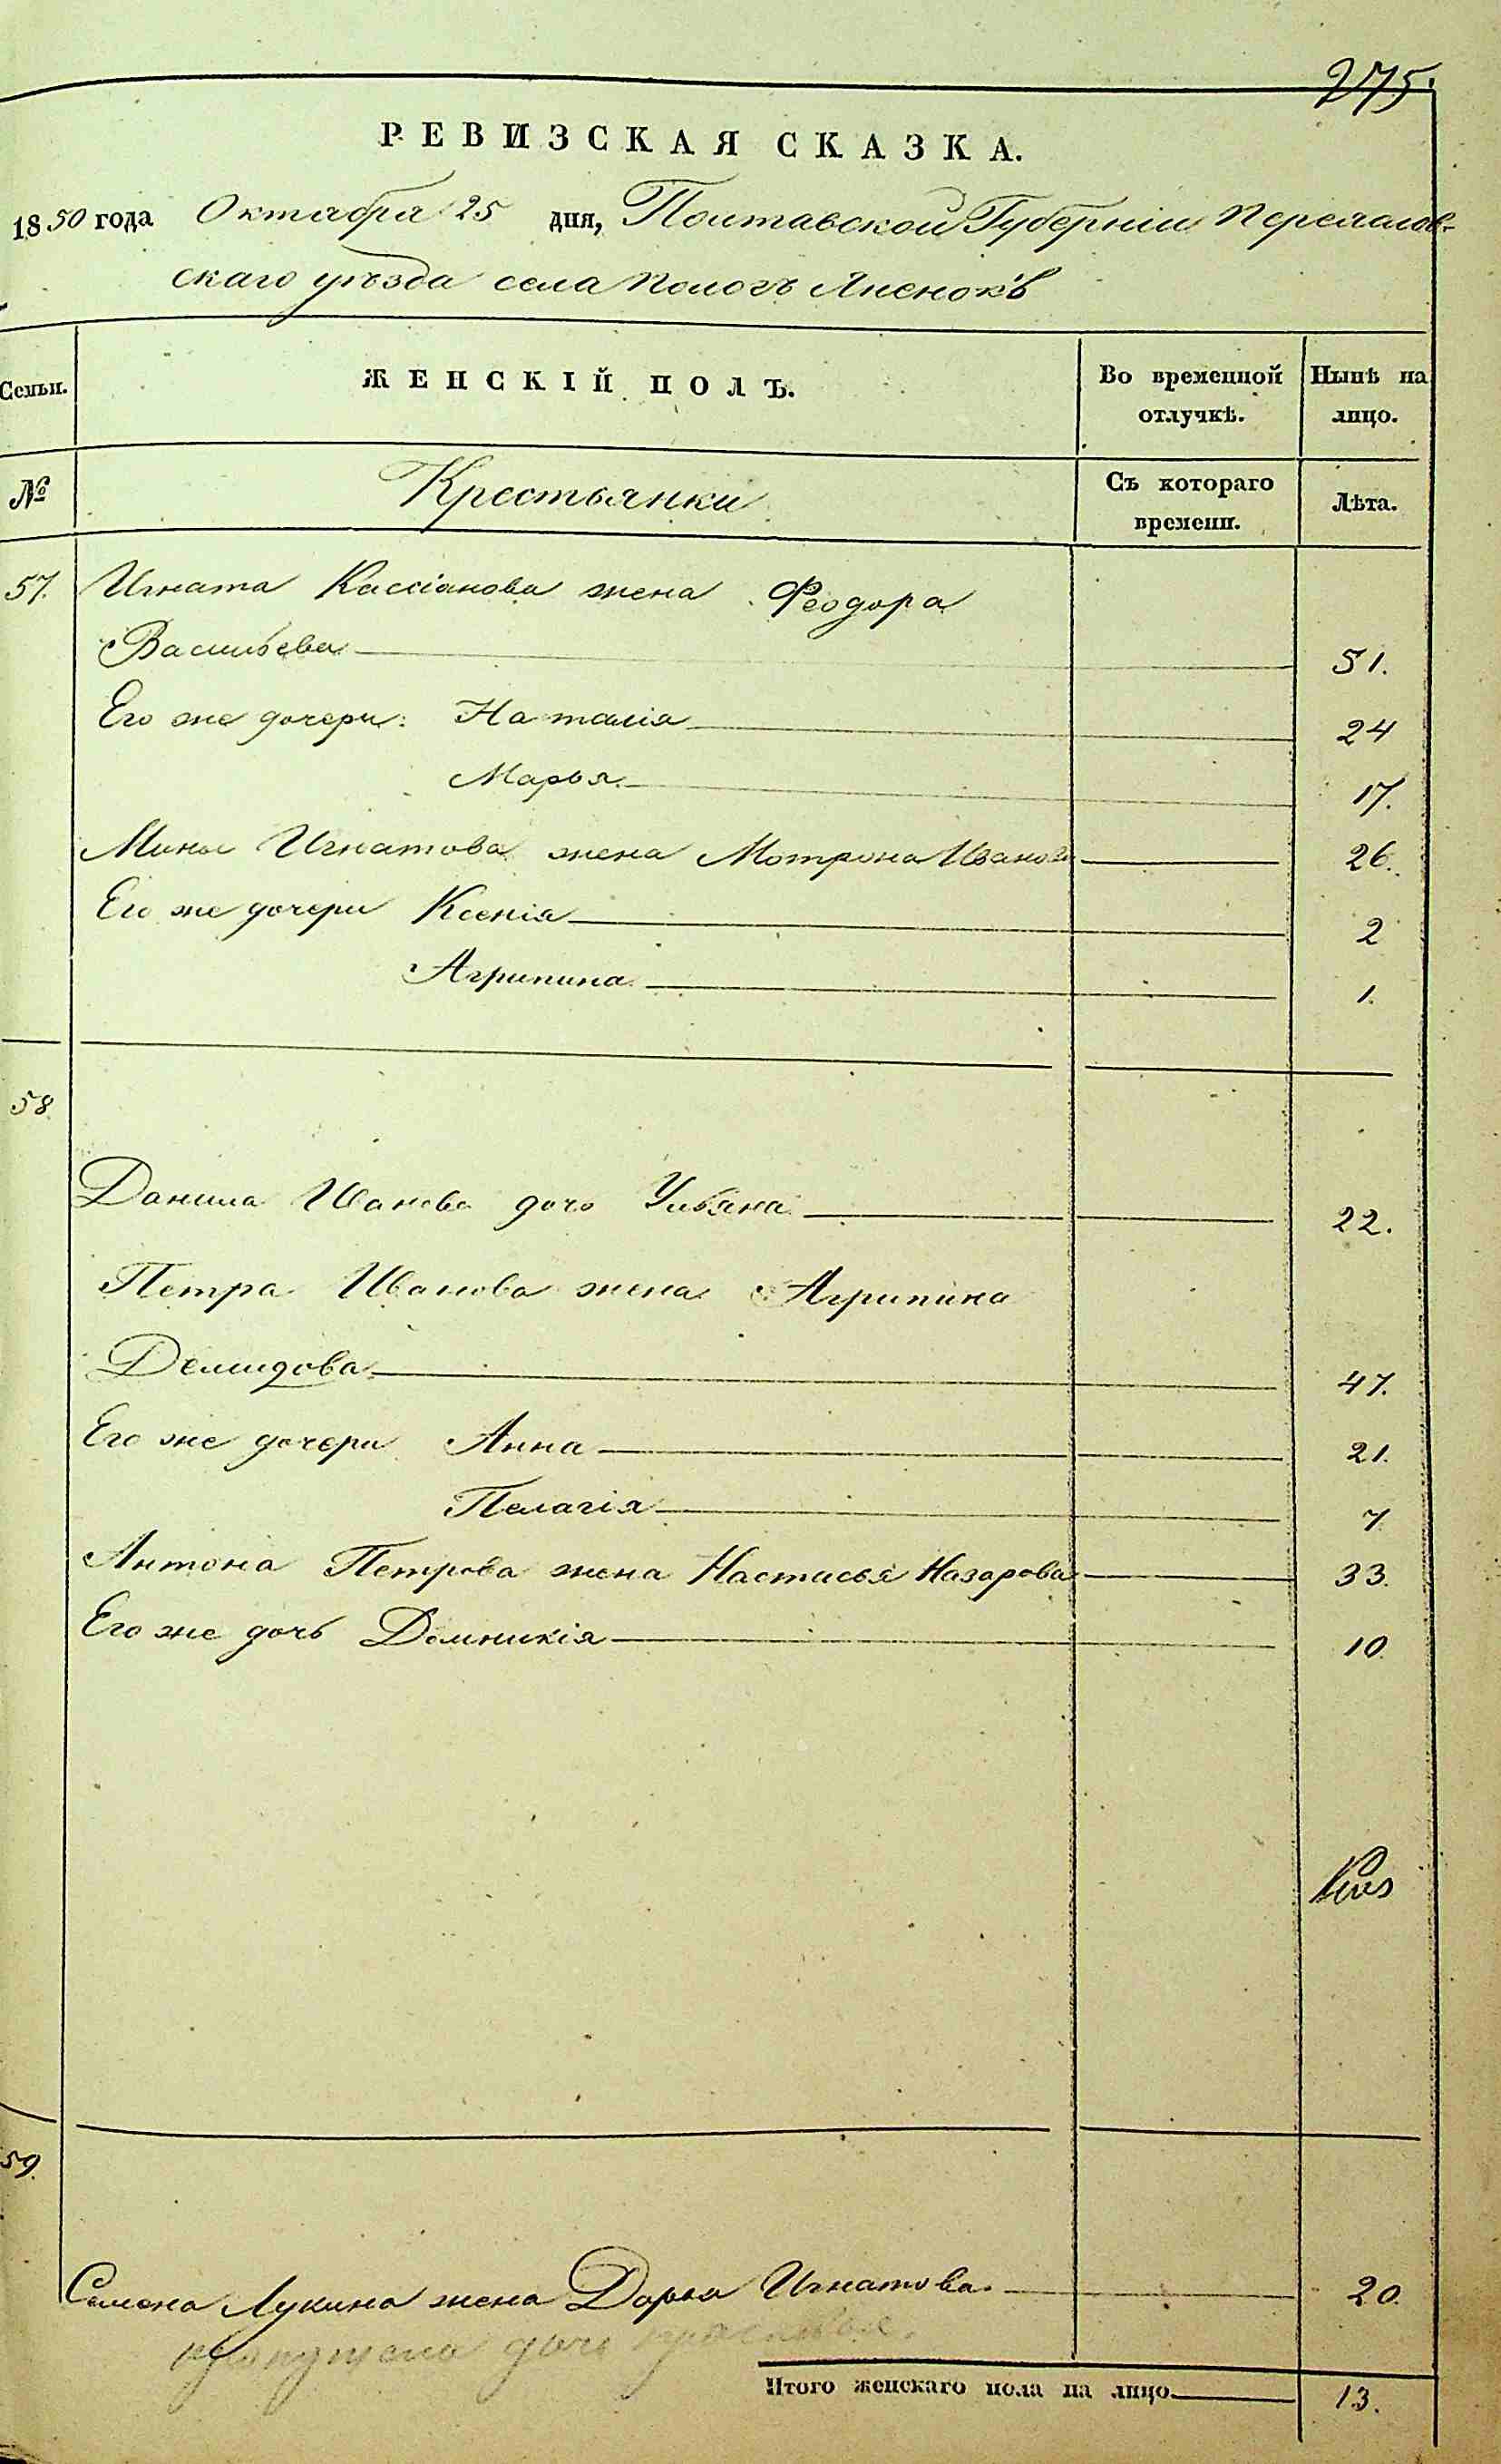 275.
РЕВИЗСКАЯ СКАЗКА.
1850 года Октября 25 дня, Полтавской Губерніи Переяслов-
скаго уѣзда села Пологъ Яненокъ
Семьи. ЖЕНСКІЙ ПОЛЪ. Во временной отлучкѣ. Нынѣ на лицо.
№ Крестьянки Съ котораго времени. Лѣта.
57. Игната Кассіанова жена Феодора
Васильева 51.
Его же дочери: Наталія 24
Марья 17.
Мины Игнатова жена Мотрона Иванова 26.
Его же дочери Ксенія 2
Агрипина 1.
58.
Данила Иванова дочь Ульяна 22.
Петра Иванова жена Агрипина
Демидова 47.
Его же дочери Анна 21.
Пелагія 7.
Антона Петрова жена Настасья Назарова 33.
Его же дочь Домникія 10.
59.
Семена Лукина жена Дарья Игнатова 20.
пропущена дочь
Итого женскаго пола на лицо 13.